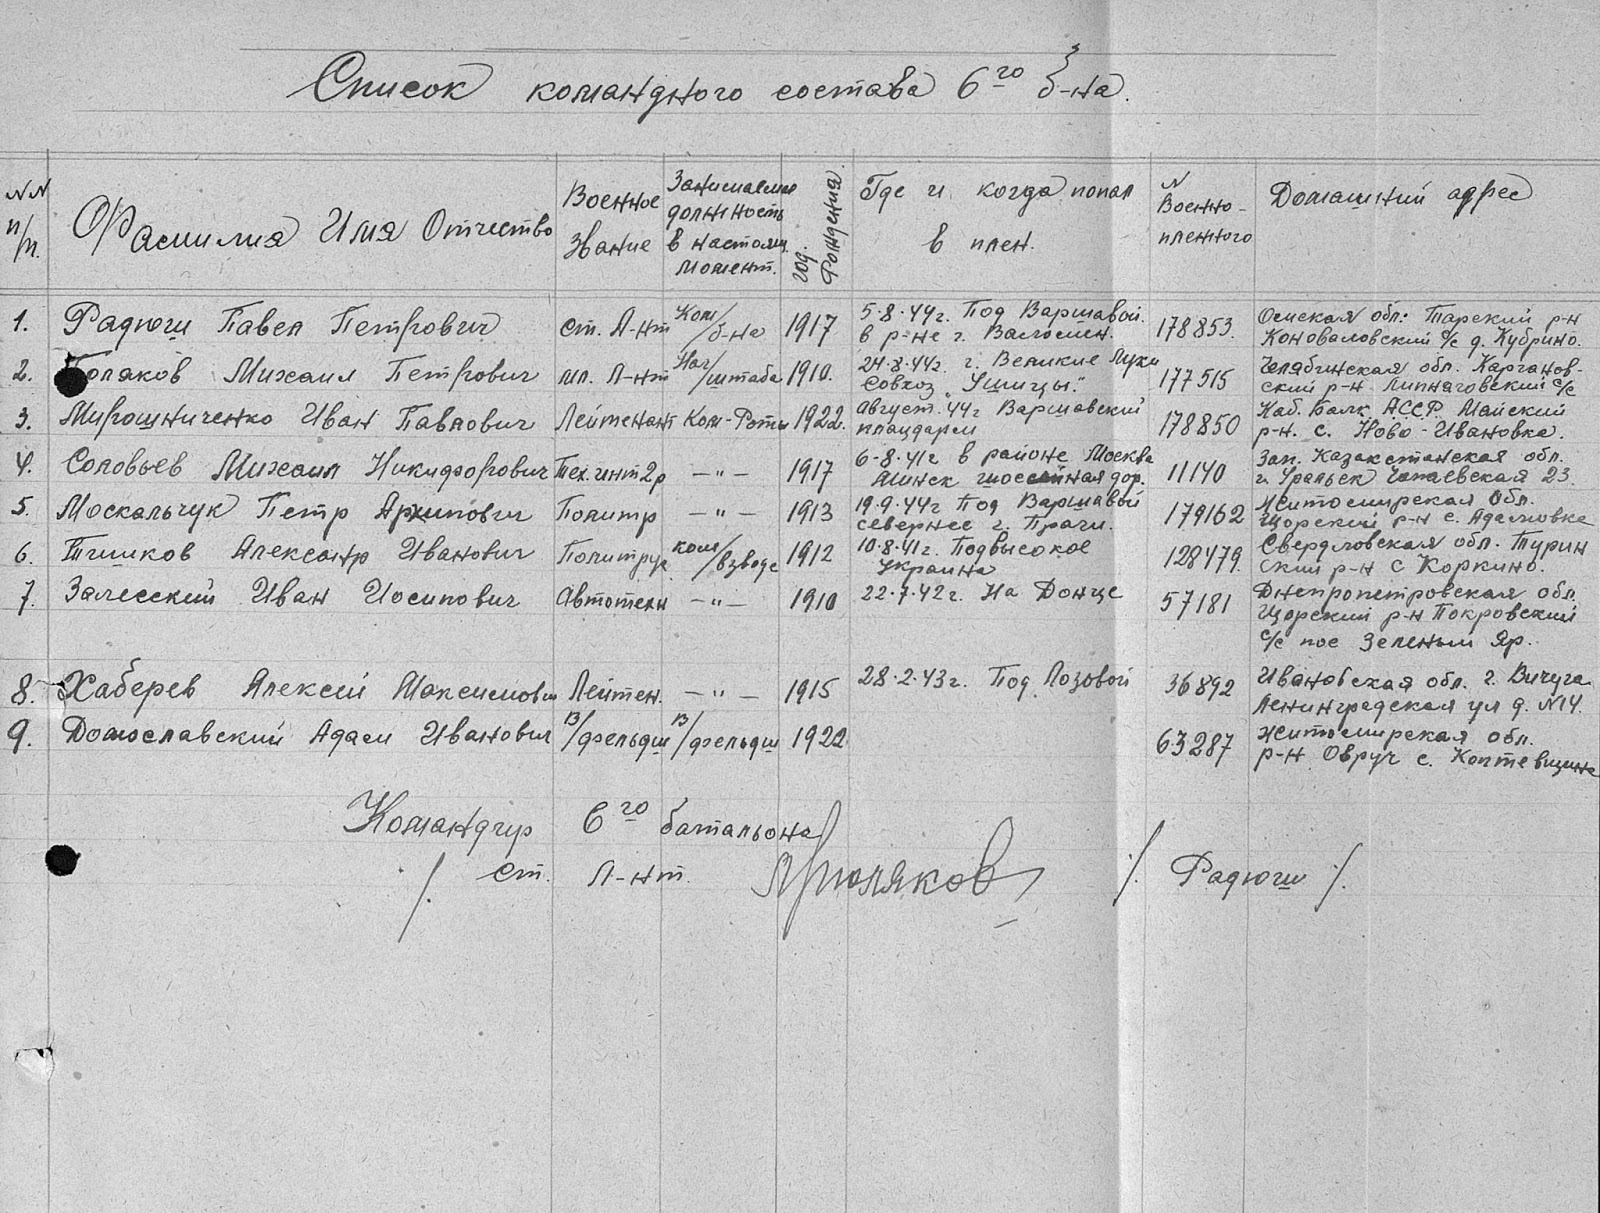 Список командного состава 6го б-на.
NN п/п.
Фамилия Имя Отчество
Военное звание
Занимаемая должность в настоящ. момент.
год. Рождения.
Где и когда попал в плен.
N Военно-пленного
Домашний адрес
1. Радюги Павел Петрович ст. Л-нт Ком/б-на 1917 5.8.44г. Под Варшавой. 178853. Омская обл: Тарский р-н
в р-не г. Коноваловский с/с д. Кубрино.
2. Поляков Михаил Петрович мл. Л-нт Нач/штаба 1910. 24.8.44г. г. Великие Луки 177515 Челябинская обл. Каргапов-
Совхоз "Ушицы." ский р-н Липняговский с/с
3. Мирошниченко Иван Павлович Лейтенант Ком-Роты 1922. Август. 44г Варшавский 178850 Каб. Балк. АССР. Майский
плацдарм р-н. с. Ново-Ивановка.
4. Соловьев Михаил Никифорович Тех. инт 2р —"— 1917 6-8.41г в районе Москва 11140 Зап. Казахстанская обл.
Минск шоссейная дор. г. Уральск Чапаевская 23.
5. Москальчук Петр Архипович Политр —"— 1913 19.9.44г Под Варшавой 179162 Житомирская Обл.
севернее г. Праги. Щорский р-н с. Адамовка
6. Тишков Александр Иванович Политрук ком/взвода 1912 10.8.41г. Подвысокое 128479. Свердловская обл. Турин
Украина ский р-н с Коркино.
7. Залесский Иван Иосипович Автотехн —"— 1910 22.7.42г. На Донце 57181 Днепропетровская обл.
Щорский р-н Покровский
с/с пос Зеленый Яр.
8. Хаберев Алексей Максимович Лейтен. —"— 1915 28.2.43г. Под Лозовой 36892 Ивановская обл. г. Вичуга
Ленинградская ул д. N14.
9. Домославский Адам Иванович В/фельдш В/фельдш 1922 63287 Житомирская обл.
р-н Овруч с.
Командир 6го батальона
/. ст. Л-нт. ./ Радюги /.